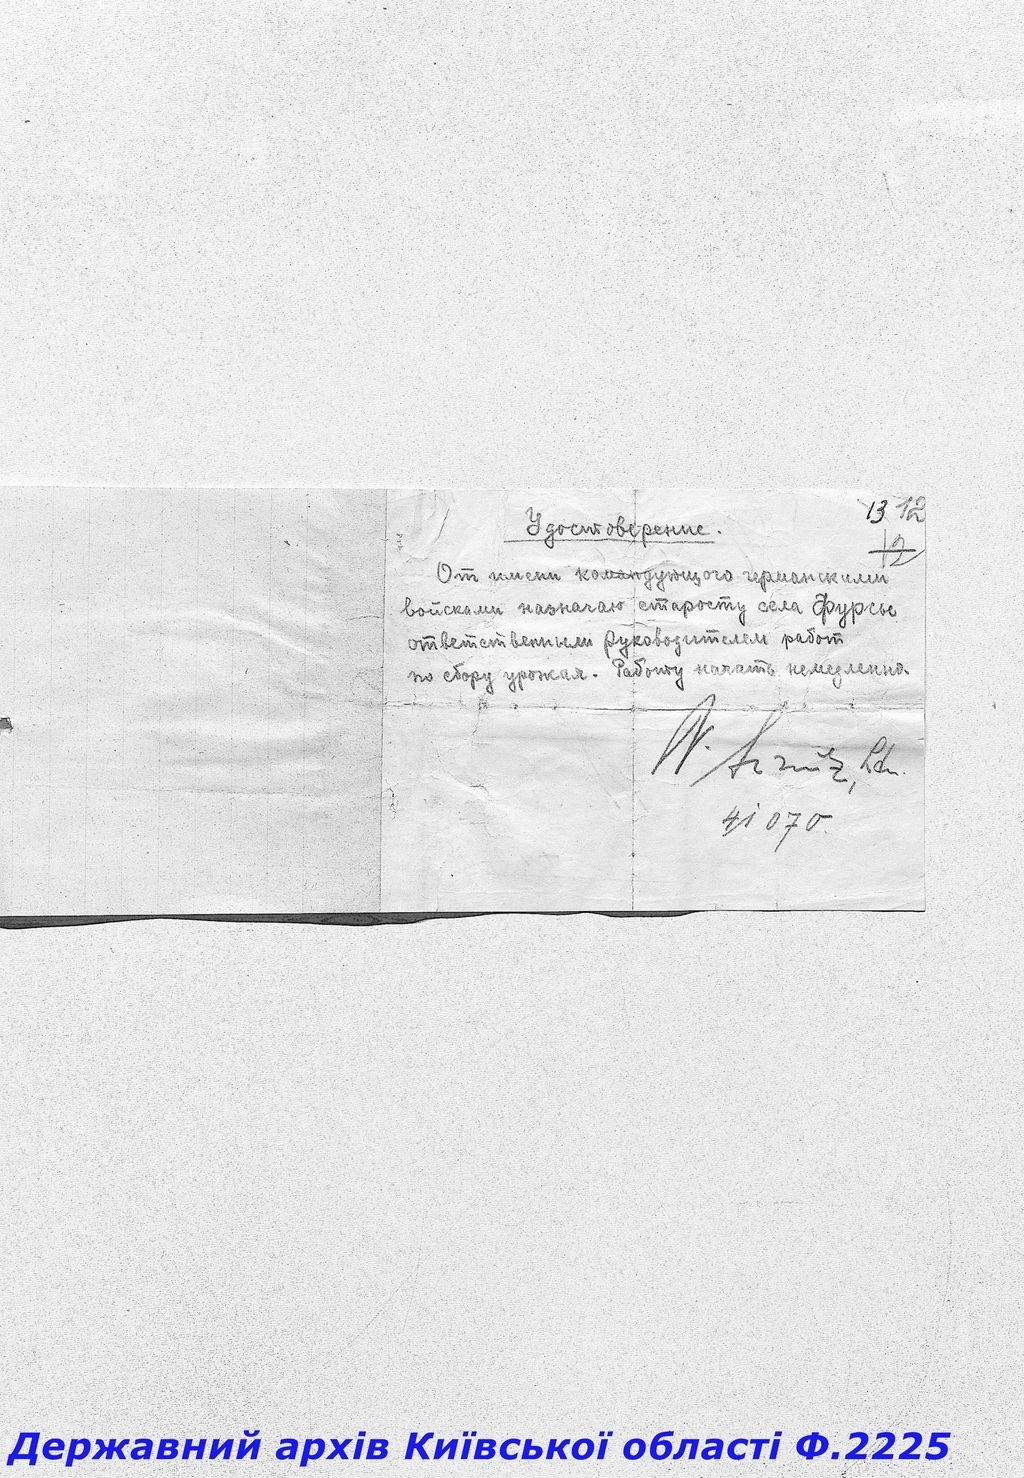 13 12
12
Удостоверение.
От имени командующого германскими
войсками назначаю старосту села Фурсы
ответственным руководителем работ
по сбору урожая. Работу начать немедленно.
41070
Державний архів Київської області Ф.2225